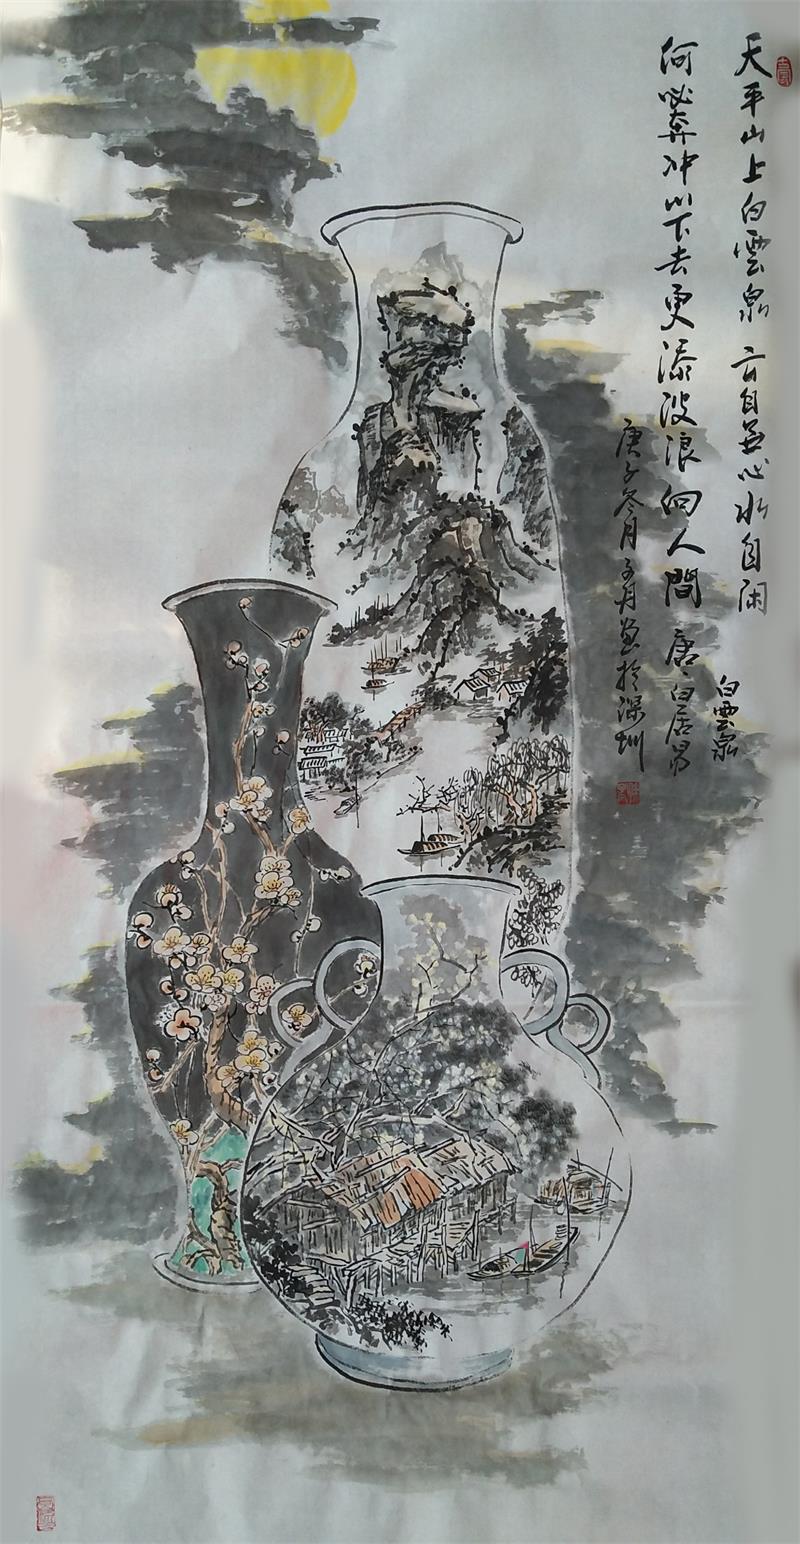 天平山上白雲泉 云自無心水自闲
白雲泉
何必奔冲山下去更添波浪向人間 唐·白居易
庚子冬月子月画於深圳